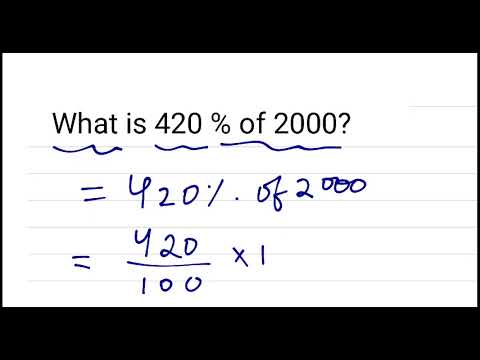 What is 420 % of 2000?
= 420%. of 2000
= 420/100 × 1